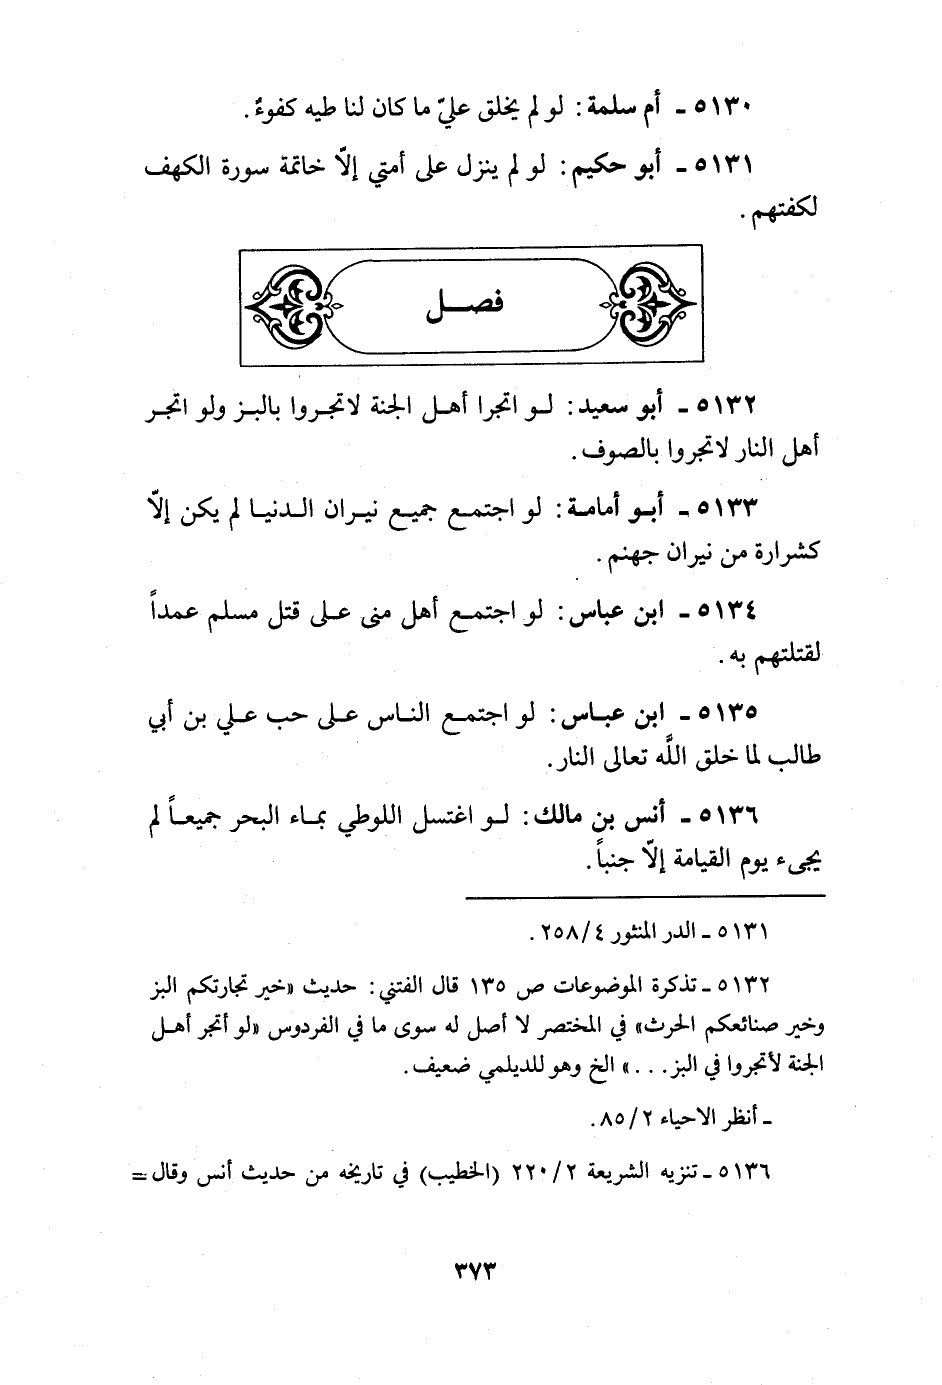 ٥١٣٠ ـ أم سلمة: لو لم يخلق عليّ ما كان لنا طيه كفوءٌ.
٥١٣١ ـ أبو حكيم: لو لم ينزل على أمتي إلّا خاتمة سورة الكهف
لكفتهم.
فصـــل
٥١٣٢ ـ أبو سعيد: لـو اتجرا أهـل الجنة لاتجـروا بالبـز ولو اتجـر
أهل النار لاتجروا بالصوف.
٥١٣٣ ـ أبـو أمامـة: لو اجتمـع جميـع نيـران الـدنيـا لم يكن إلّا
كشرارة من نيران جهنم.
٥١٣٤ ـ ابن عباس: لو اجتمـع أهل منى عـلى قتل مسلم عمداً
لقتلتهم به.
٥١٣٥ ـ ابن عبـاس: لو اجتمـع النـاس عـلى حب عـلي بن أبي
طالب لما خلق اللَّه تعالى النار.
٥١٣٦ ـ أنس بن مالك: لـو اغتسل اللوطي بمـاء البحر جميعـاً لم
يجيء يوم القيامة إلّا جنباً.
٥١٣١ ـ الدر المنثور ٢٥٨/٤.
٥١٣٢ ـ تذكرة الموضوعات ص ١٣٥ قال الفتني: حديث «خير تجارتكم البز
وخير صنائعكم الحرث» في المختصر لا أصل له سوى ما في الفردوس «لو أتجر أهـل
الجنة لأتجروا في البز...» الخ وهو للديلمي ضعيف.
ـ أنظر الاحياء ٨٥/٢.
٥١٣٦ ـ تنزيه الشريعة ٢٢٠/٢ (الخطيب) في تاريخه من حديث أنس وقال =
٣٧٣